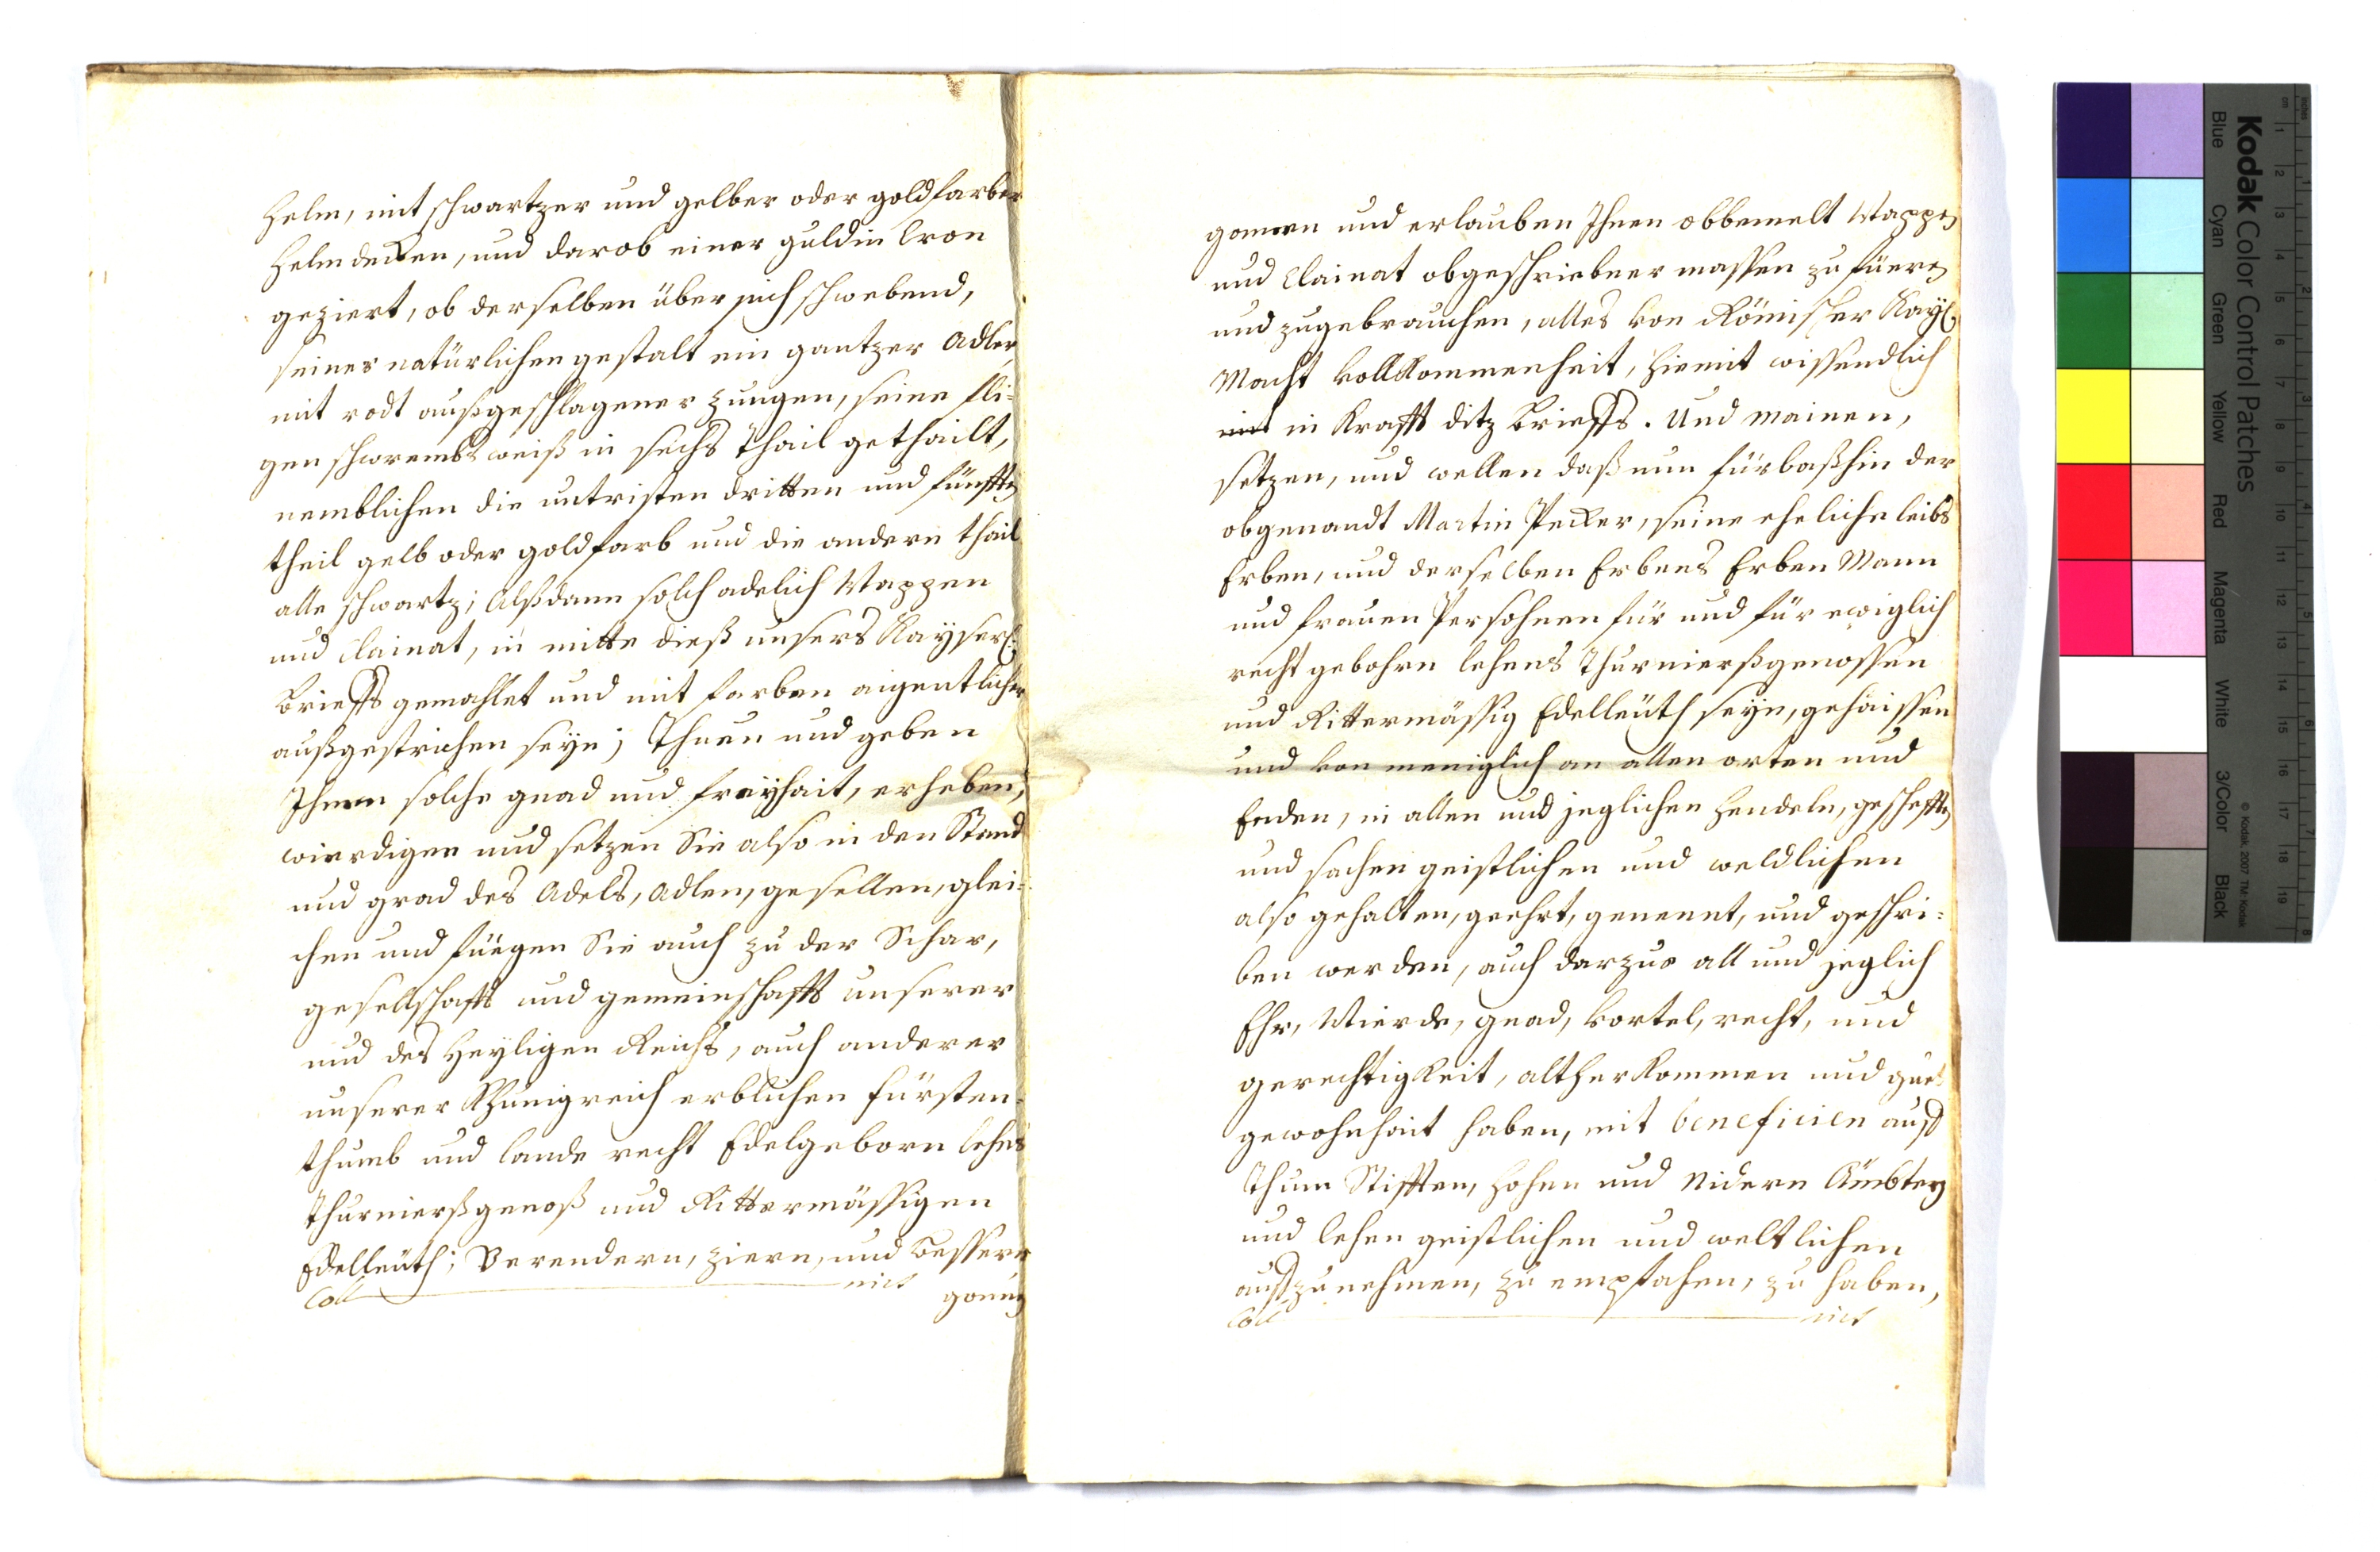 Helm, mit schwartzer und gelber oder goldfarber
Helmdecken, und darob einer guldin Cron
geziert, ob derselben über sich schwebend,
seiner natürlichen gestalt ein gantzer Adler
mit rodt außgeschlagener Zungen, seine Fli¬
gen schrembsweiß in sechs Thail gethailt,
nemblichen die untristen dritten und fünfften
theil gelb oder goldfarb und die andern thail
alle schwartz; Alßdann solch adelich Wappen
und Clainat, in mitte dieß unsers Kayserl:
Brieffs gemahlet und mit farben aigentlicher
außgestrichen seyn; Thuen und geben
Ihnen solche gnad und freyhait, erheben,
wierdigen und setzen Sie also in den Stand
und grad des Adels, Adlen, gesellen, glei¬
chen und füegen Sie auch zu der Schar,
gesellschafft und gemeinschafft unserer
und des Heyligen Reichs, auch anderer
unserer Khünigreich erblichen fürsten¬
thumb und lande recht Edelgeborn lehns
Thurnierßgenoß und Rittermässigen
Edelleüth; Verendern, ziern, und bessern
Coll
gonnen
gonnen und erlauben Ihnen obbemelt Wappen
und Clainat obgeschriebner massen zu füeren
und zugebrauchen, alles von Römischer Kayl:
Macht vollkommenheit, hiemit wissendlich
in Krafft ditz Brieffs. Und mainen,
setzen, und wellen daß nun fürbaßhin der
obgenandt Martin Pecker, seine eheliche leibs
Erben, und derselben Erbens Erben Mann
und frauen Persohnen für und für ewiglich
recht gebohrn lehens Thurnierßgenossen
und Rittermässig Edelleüth seyn, gehaissen
und von meniglich an allen orten und
Enden, in allen und jeglichen Hendeln, geschefften
und sachen geistlichen und weldlichen
also gehalten, geehrt, genennt, und geschri¬
ben werden, auch darzue all und jeglich
Ehr, Wierde, gnad, vortel, recht, und
gerechtigkeit, altherkommen und guet
gewohnhait haben, mit beneficien auf
Thum Stifften, Hohen und Nidern Ämbtern
und lehen geistlichen und weltlichen
aufzunehmen, zu empfahen, zu haben,
Coll